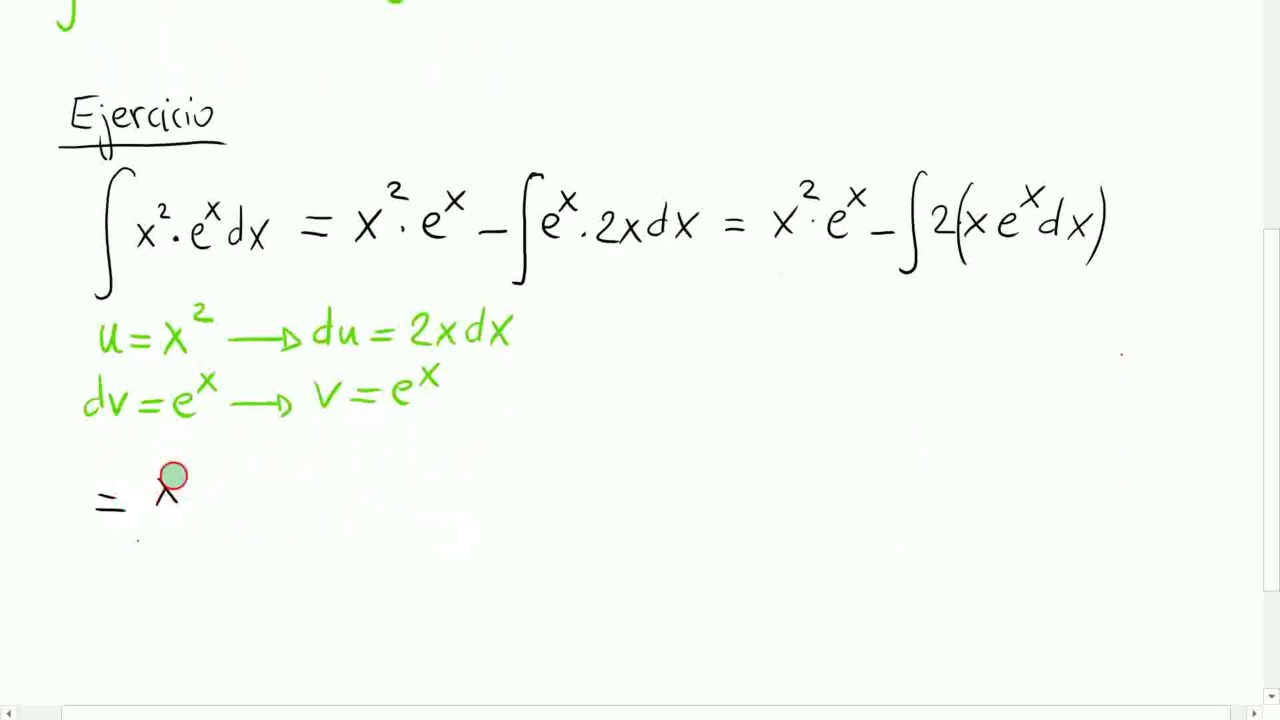 Ejercicio
∫ x². eˣ dx = x². eˣ - ∫ eˣ. 2x dx = x². eˣ - ∫ 2(x eˣ dx)
u = x² → du = 2x dx
dv = eˣ → v = eˣ
= x